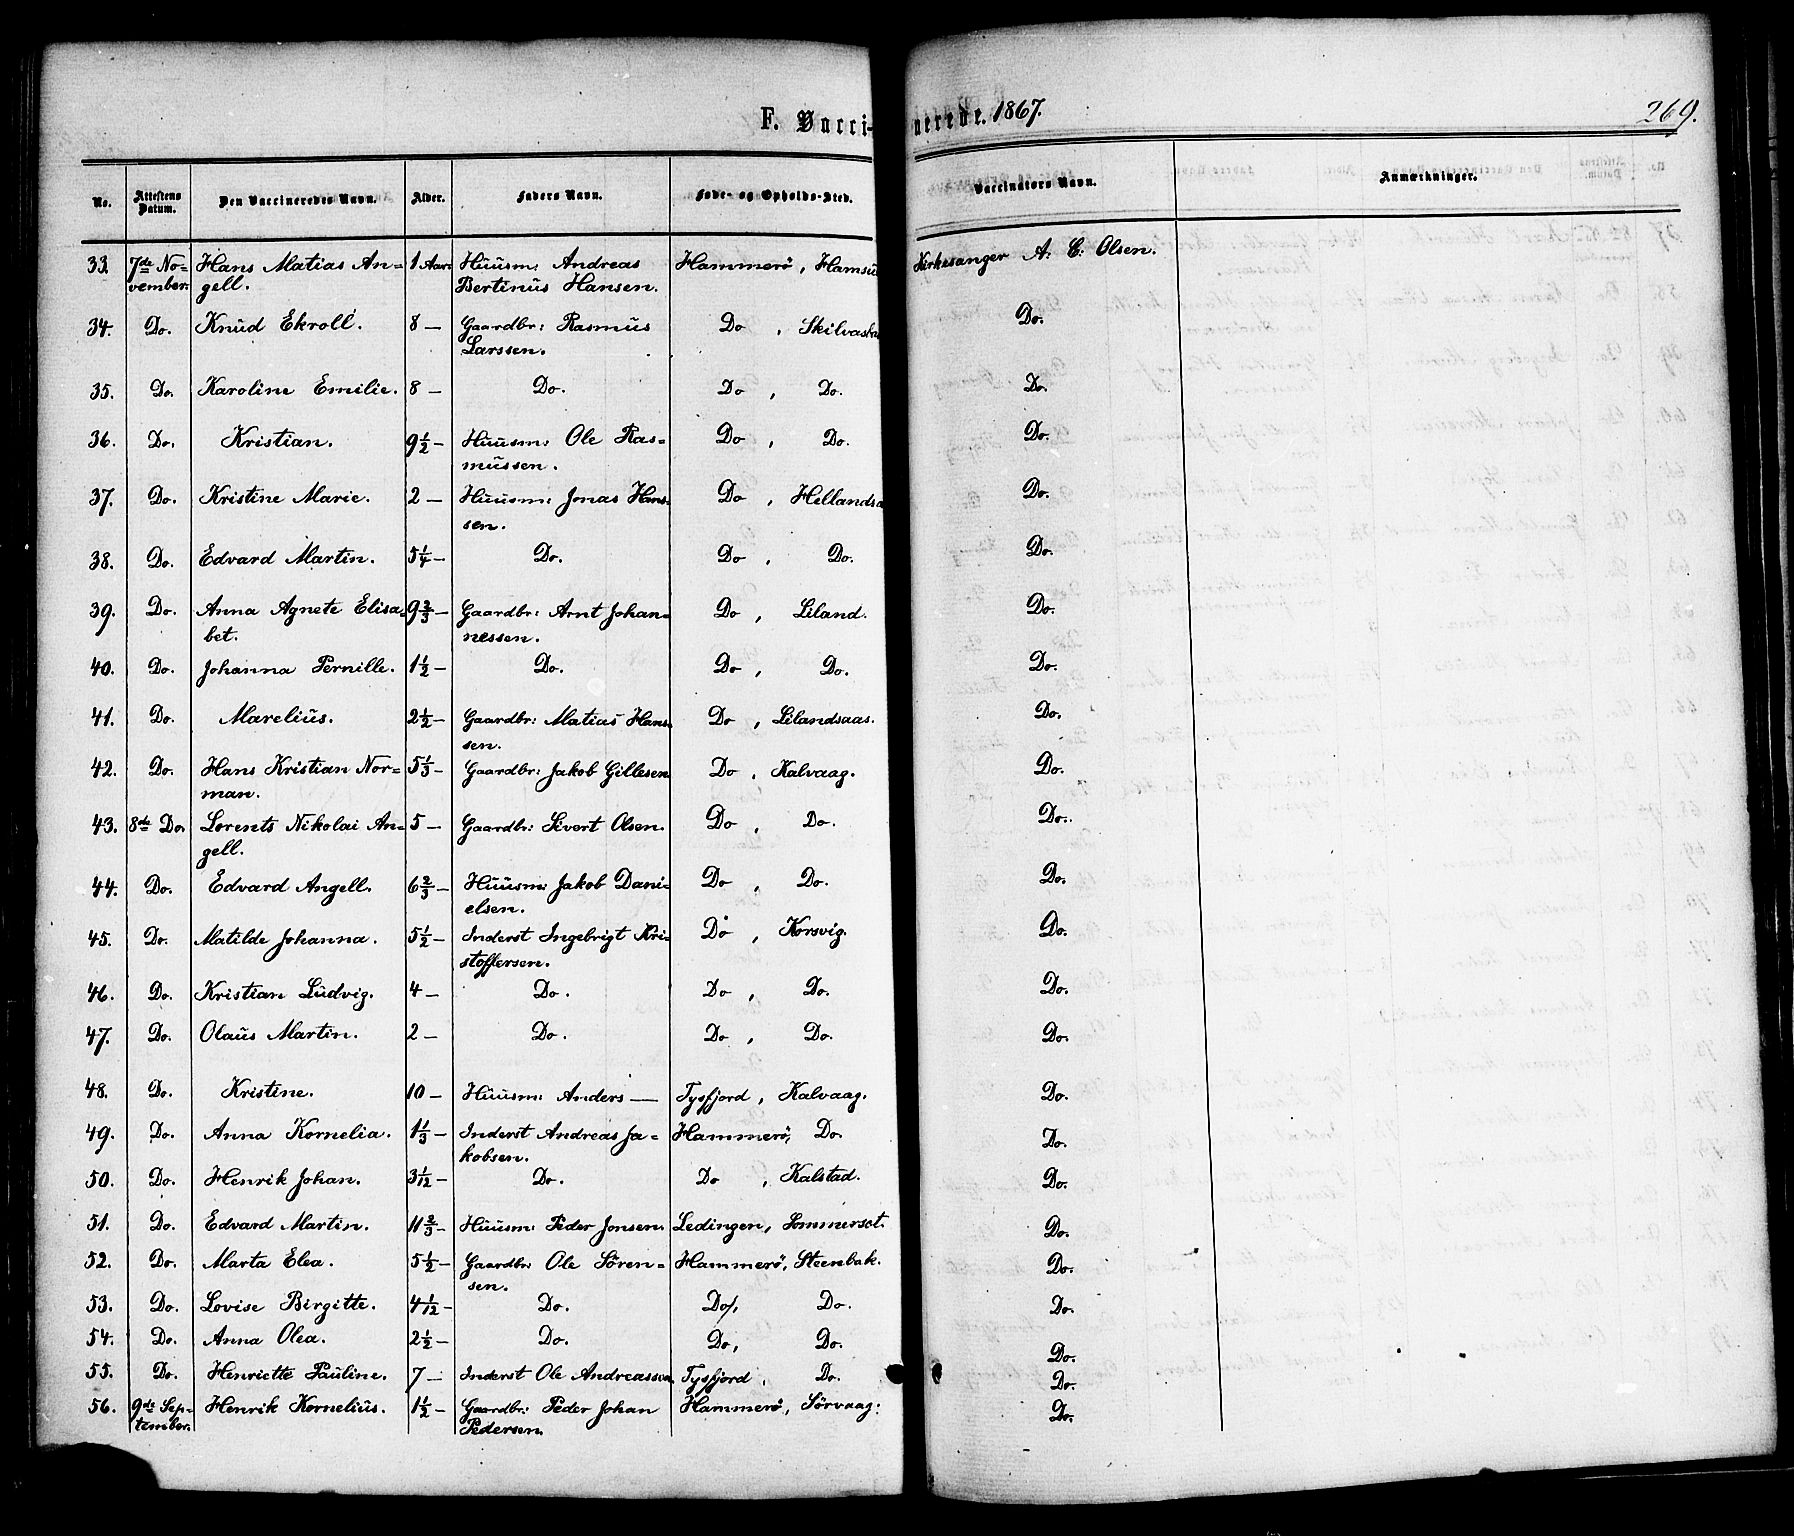 F. Vacci-nerede. 1867. 269.
No. Attestens Datum. Den Vaccineredes Navn. Alder. Faders Navn. Føde- og Opholds-Sted. Vaccinatørs Navn. Anmærkninger.
33. 7de No- Hans Matias An- 1 Aar Huusm: Andreas Hammerö, Hamsu Kirkesanger A. C. Olsen.
vember. gell. Bertinus Hansen.
34. Do. Knud Ekroll. 8 — Gaardbr: Rasmus Do , Do.
Larssen.
35. Do. Karoline Emilie. 8 — Do. Do , Do. Do.
36. Do. Kristian. 9 1/2 — Huusm: Ole Ras- Do , Do. Do.
mussen.
37. Do. Kristine Marie. 2 — Huusm: Jonas Hans- Do , Hellandsa Do.
sen.
38. Do. Edvard Martin. 5 1/4 — Do. Do , Do. Do.
39. Do. Anna Agnete Elisa- 9 2/3 — Gaardbr: Arnt Johan- Do , Liland. Do.
bet. nessen.
40. Do. Johanna Pernille. 1 1/2 — Do. Do , Do. Do.
41. Do. Marelius. 2 1/2 — Gaardbr: Matias Hans- Do , Lilandsaas. Do.
sen.
42. Do. Hans Kristian Nor- 5 1/3 — Gaardbr: Jakob Gillesen Do , Kalvaag. Do.
man.
43. 8de Do. Lorents Nikolai An- 5 — Gaardbr: Sivert Olsen. Do , Do. Do.
gell.
44. Do. Edvard Angell. 6 2/3 — Huusm: Jakob Dani- Do , Do. Do.
elsen.
45. Do. Matilde Johanna. 5 1/2 — Inderst Ingebrigt Kri- Do , Korsvig. Do.
stoffersen.
46. Do. Kristian Ludvig. 4 — Do. Do , Do. Do.
47. Do. Olaus Martin. 2 — Do. Do , Do. Do.
48. Do. Kristine. 10 — Huusm: Anders — Tysfjord, Kalvaag. Do.
49. Do. Anna Kornelia. 1 1/3 — Inderst Andreas Ja- Hammerö, Do. Do.
kobsen.
50. Do. Henrik Johan. 3 1/12 — Do. Do , Kalstad. Do.
51. Do. Edvard Martin. 11 2/3 — Huusm: Peder Jonsen. Ledingen, Sommerset. Do.
52. Do. Marta Elea. 5 1/2 — Gaardbr: Ole Sören- Hammerö, Steenbak. Do.
sen.
53. Do. Lovise Birgitte. 4 1/12 — Do. Do, Do. Do.
54. Do. Anna Olea. 2 1/2 — Do. Do, Do. Do.
55. Do. Henriette Pauline. 7 — Inderst Ole Andreassen. Tysfjord, Do. Do.
56. 9de Sep- Henrik Kornelius. 1 1/2 — Gaardbr: Peder Johan Hammerö, Sörvaag: Do.
tember. Pedersen.